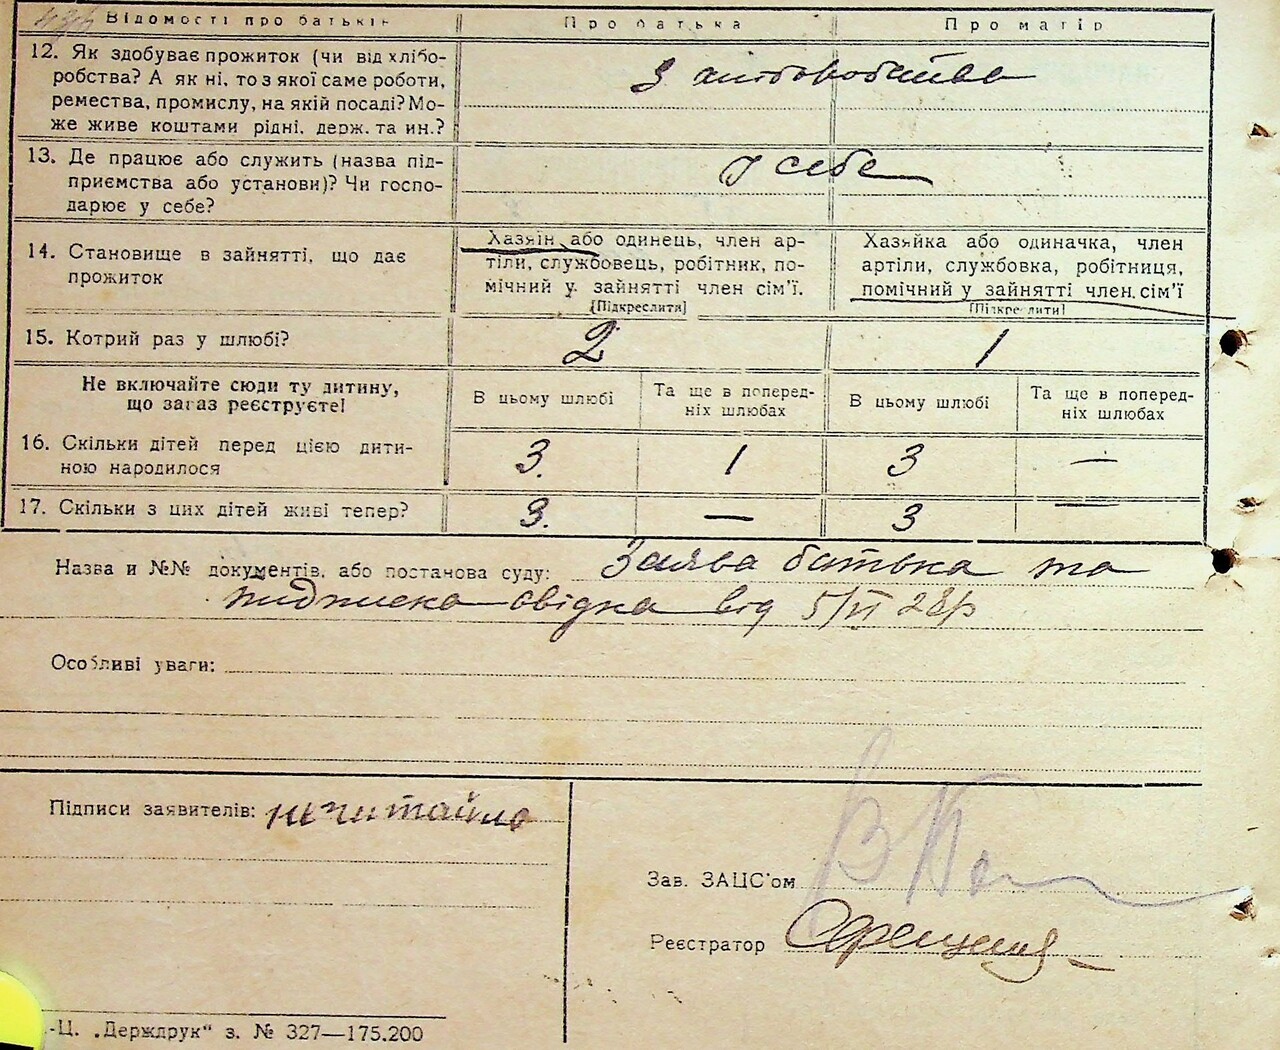 Відомості про батьків Про батька Про матір
12. Як здобуває прожиток (чи від хлібо-
робства? А як ні, то з якої саме роботи,
ремества, промислу, на якій посаді? Мо-
же живе коштами рідні, держ. та ин.?
З хліборобства
13. Де працює або служить (назва під-
приємства або установи)? Чи госпо-
дарює у себе?
у себе
14. Становище в зайнятті, що дає
прожиток
Хазяїн або одинець, член ар-
тіли, службовець, робітник, по-
мічний у зайнятті член сім'ї.
[Підкреслити]
Хазяйка або одиначка, член
артіли, службовка, робітниця,
помічний у зайнятті член сім'ї
[Підкреслити]
15. Котрий раз у шлюбі? 2 1
Не включайте сюди ту дитину,
що зараз реєструєте!
В цьому шлюбі
Та ще в поперед-
ніх шлюбах
В цьому шлюбі
Та ще в поперед-
ніх шлюбах
16. Скільки дітей перед цією дити-
ною народилося
3. 1 3 —
17. Скільки з цих дітей живі тепер? 3. — 3 —
Назва и №№ документів, або постанова суду: Заява батька та
свідка від 5/VI 28р
Особливі уваги:
Підписи заявителів:
Зав. ЗАЦС'ом
Реєстратор
-Ц. „Держдрук“ з. № 327—175.200